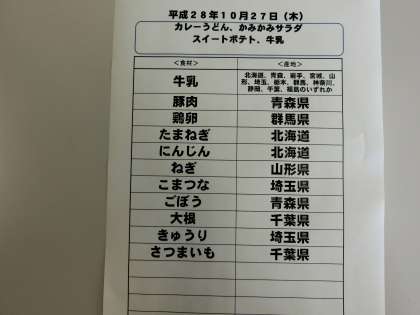 平成28年10月27日（木）
カレーうどん、かみかみサラダ
スイートポテト、牛乳
＜食材＞ ＜産地＞
牛乳 北海道、青森、岩手、宮城、山
形、埼玉、栃木、群馬、神奈川、
静岡、千葉、福島のいずれか
豚肉 青森県
鶏卵 群馬県
たまねぎ 北海道
にんじん 北海道
ねぎ 山形県
こまつな 埼玉県
ごぼう 青森県
大根 千葉県
きゅうり 埼玉県
さつまいも 千葉県